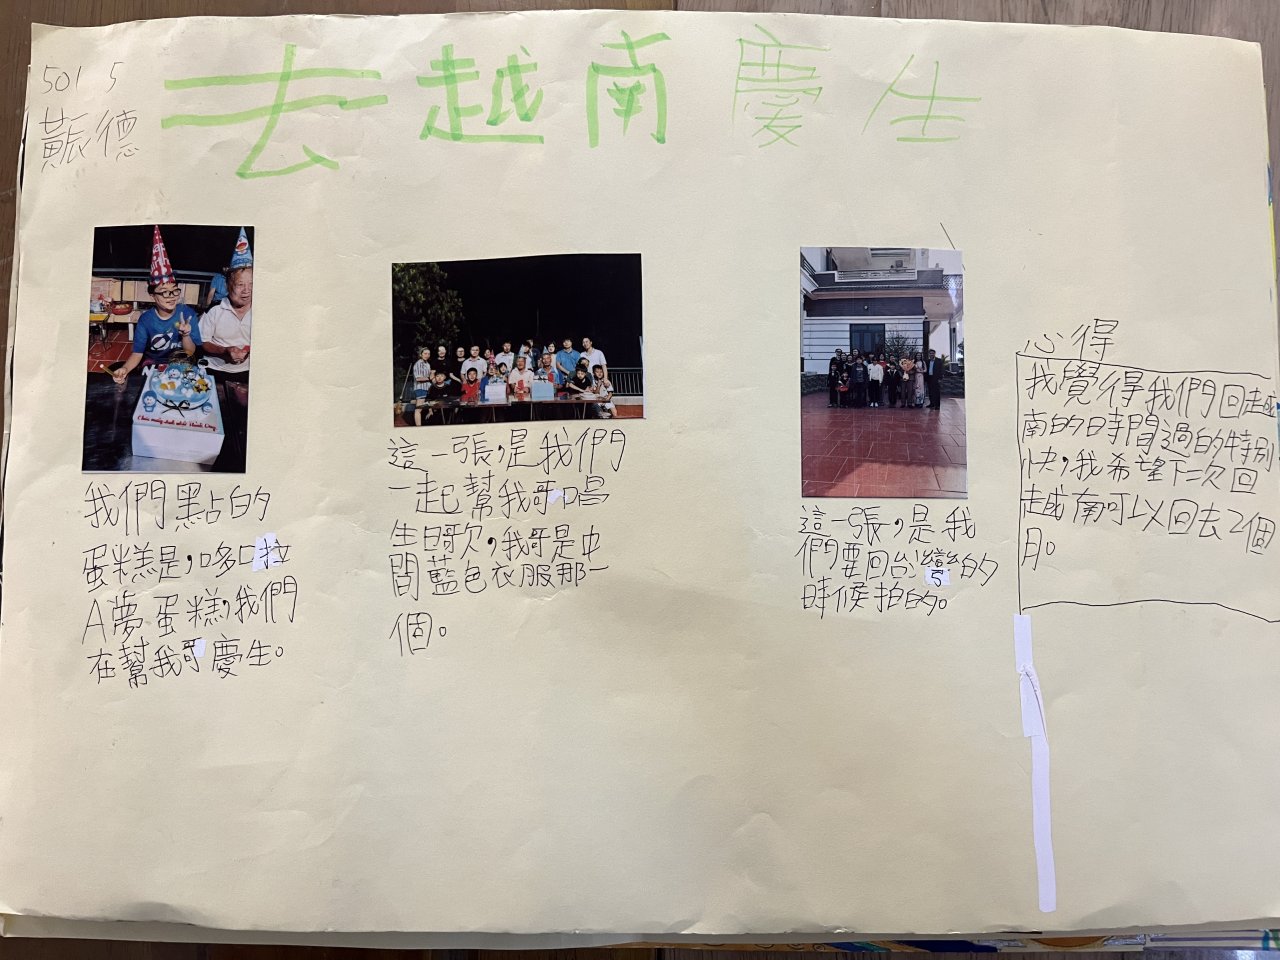 501 5
去越南慶生
我們點的
蛋糕是,哆口拉
A夢蛋糕,我們
在幫我哥慶生。
這一張,是我們
一起幫我哥唱
生日歌,我哥是中
間藍色衣服那一
個。
這一張,是我
們要回台灣的
時候拍的。
心得
我覺得我們回越
南的時間過的特別
快,我希望下二次回
越南可以回去2個
月。